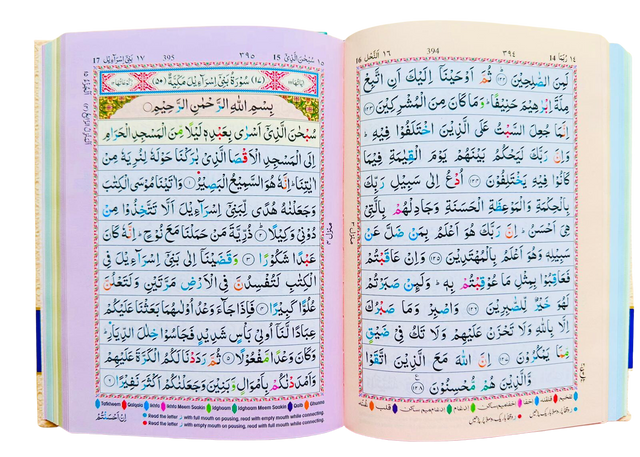 رُبَمَا ١٤ 14 ٣٩٤ 394 النَّحْل ١٦ 16
لَمِنَ الصّٰلِحِيْنَ ﴿١٢٢﴾ ثُمَّ اَوْحَيْنَاۤ اِلَيْكَ اَنِ اتَّبِعْ
مِلَّةَ اِبْرٰهِيْمَ حَنِيْفًا ؕ وَمَا كَانَ مِنَ الْمُشْرِكِيْنَ ﴿١٢٣﴾
اِنَّمَا جُعِلَ السَّبْتُ عَلَى الَّذِيْنَ اخْتَلَفُوْا فِيْهِ ؕ
وَاِنَّ رَبَّكَ لَيَحْكُمُ بَيْنَهُمْ يَوْمَ الْقِيٰمَةِ فِيْمَا
كَانُوْا فِيْهِ يَخْتَلِفُوْنَ ﴿١٢٤﴾ اُدْعُ اِلٰى سَبِيْلِ رَبِّكَ
بِالْحِكْمَةِ وَالْمَوْعِظَةِ الْحَسَنَةِ وَجَادِلْهُمْ بِالَّتِيْ
هِيَ اَحْسَنُ ؕ اِنَّ رَبَّكَ هُوَ اَعْلَمُ بِمَنْ ضَلَّ عَنْ
سَبِيْلِهٖ وَهُوَ اَعْلَمُ بِالْمُهْتَدِيْنَ ﴿١٢٥﴾ وَاِنْ عَاقَبْتُمْ
فَعَاقِبُوْا بِمِثْلِ مَا عُوْقِبْتُمْ بِهٖ ؕ وَلَئِنْ صَبَرْتُمْ
لَهُوَ خَيْرٌ لِّلصّٰبِرِيْنَ ﴿١٢٦﴾ وَاصْبِرْ وَمَا صَبْرُكَ
اِلَّا بِاللّٰهِ وَلَا تَحْزَنْ عَلَيْهِمْ وَلَا تَكُ فِيْ ضَيْقٍ
مِّمَّا يَمْكُرُوْنَ ﴿١٢٧﴾ اِنَّ اللّٰهَ مَعَ الَّذِيْنَ اتَّقَوْا
وَّالَّذِيْنَ هُمْ مُّحْسِنُوْنَ ﴿١٢٨﴾
سُبْحٰنَ الَّذِيْٓ ١٥ 15 ٣٩٥ 395 بَنِيْٓ اِسْرَآءِيْل ١٧ 17
(١٧) سُوْرَةُ بَنِيْٓ اِسْرَآءِيْلَ مَكِّيَّةٌ (٥٠)
بِسْمِ اللّٰهِ الرَّحْمٰنِ الرَّحِيْمِ
سُبْحٰنَ الَّذِيْۤ اَسْرٰى بِعَبْدِهٖ لَيْلًا مِّنَ الْمَسْجِدِ الْحَرَامِ
اِلَى الْمَسْجِدِ الْاَقْصَا الَّذِيْ بٰرَكْنَا حَوْلَهٗ لِنُرِيَهٗ مِنْ
اٰيٰتِنَا ؕ اِنَّهٗ هُوَ السَّمِيْعُ الْبَصِيْرُ ﴿١﴾ وَاٰتَيْنَا مُوْسَى الْكِتٰبَ
وَجَعَلْنٰهُ هُدًى لِّبَنِيْۤ اِسْرَآءِيْلَ اَلَّا تَتَّخِذُوْا مِنْ
دُوْنِيْ وَكِيْلًا ﴿٢﴾ ذُرِّيَّةَ مَنْ حَمَلْنَا مَعَ نُوْحٍ ؕ اِنَّهٗ كَانَ
عَبْدًا شَكُوْرًا ﴿٣﴾ وَقَضَيْنَاۤ اِلٰى بَنِيْۤ اِسْرَآءِيْلَ فِي
الْكِتٰبِ لَتُفْسِدُنَّ فِي الْاَرْضِ مَرَّتَيْنِ وَلَتَعْلُنَّ
عُلُوًّا كَبِيْرًا ﴿٤﴾ فَاِذَا جَآءَ وَعْدُ اُوْلٰىهُمَا بَعَثْنَا عَلَيْكُمْ
عِبَادًا لَّنَاۤ اُولِيْ بَاْسٍ شَدِيْدٍ فَجَاسُوْا خِلٰلَ الدِّيَارِ ؕ
وَكَانَ وَعْدًا مَّفْعُوْلًا ﴿٥﴾ ثُمَّ رَدَدْنَا لَكُمُ الْكَرَّةَ عَلَيْهِمْ
وَاَمْدَدْنٰكُمْ بِاَمْوَالٍ وَّبَنِيْنَ وَجَعَلْنٰكُمْ اَكْثَرَ نَفِيْرًا ﴿٦﴾
Tafkheem Qalqala Ikhfa Ikhfa Meem Saakin Idghaam Idghaam Meem Saakin Qalb Ghunna
Read the letter with full mouth on pausing, read with empty mouth while connecting
Read the letter with empty mouth on pausing, read with full mouth while connecting